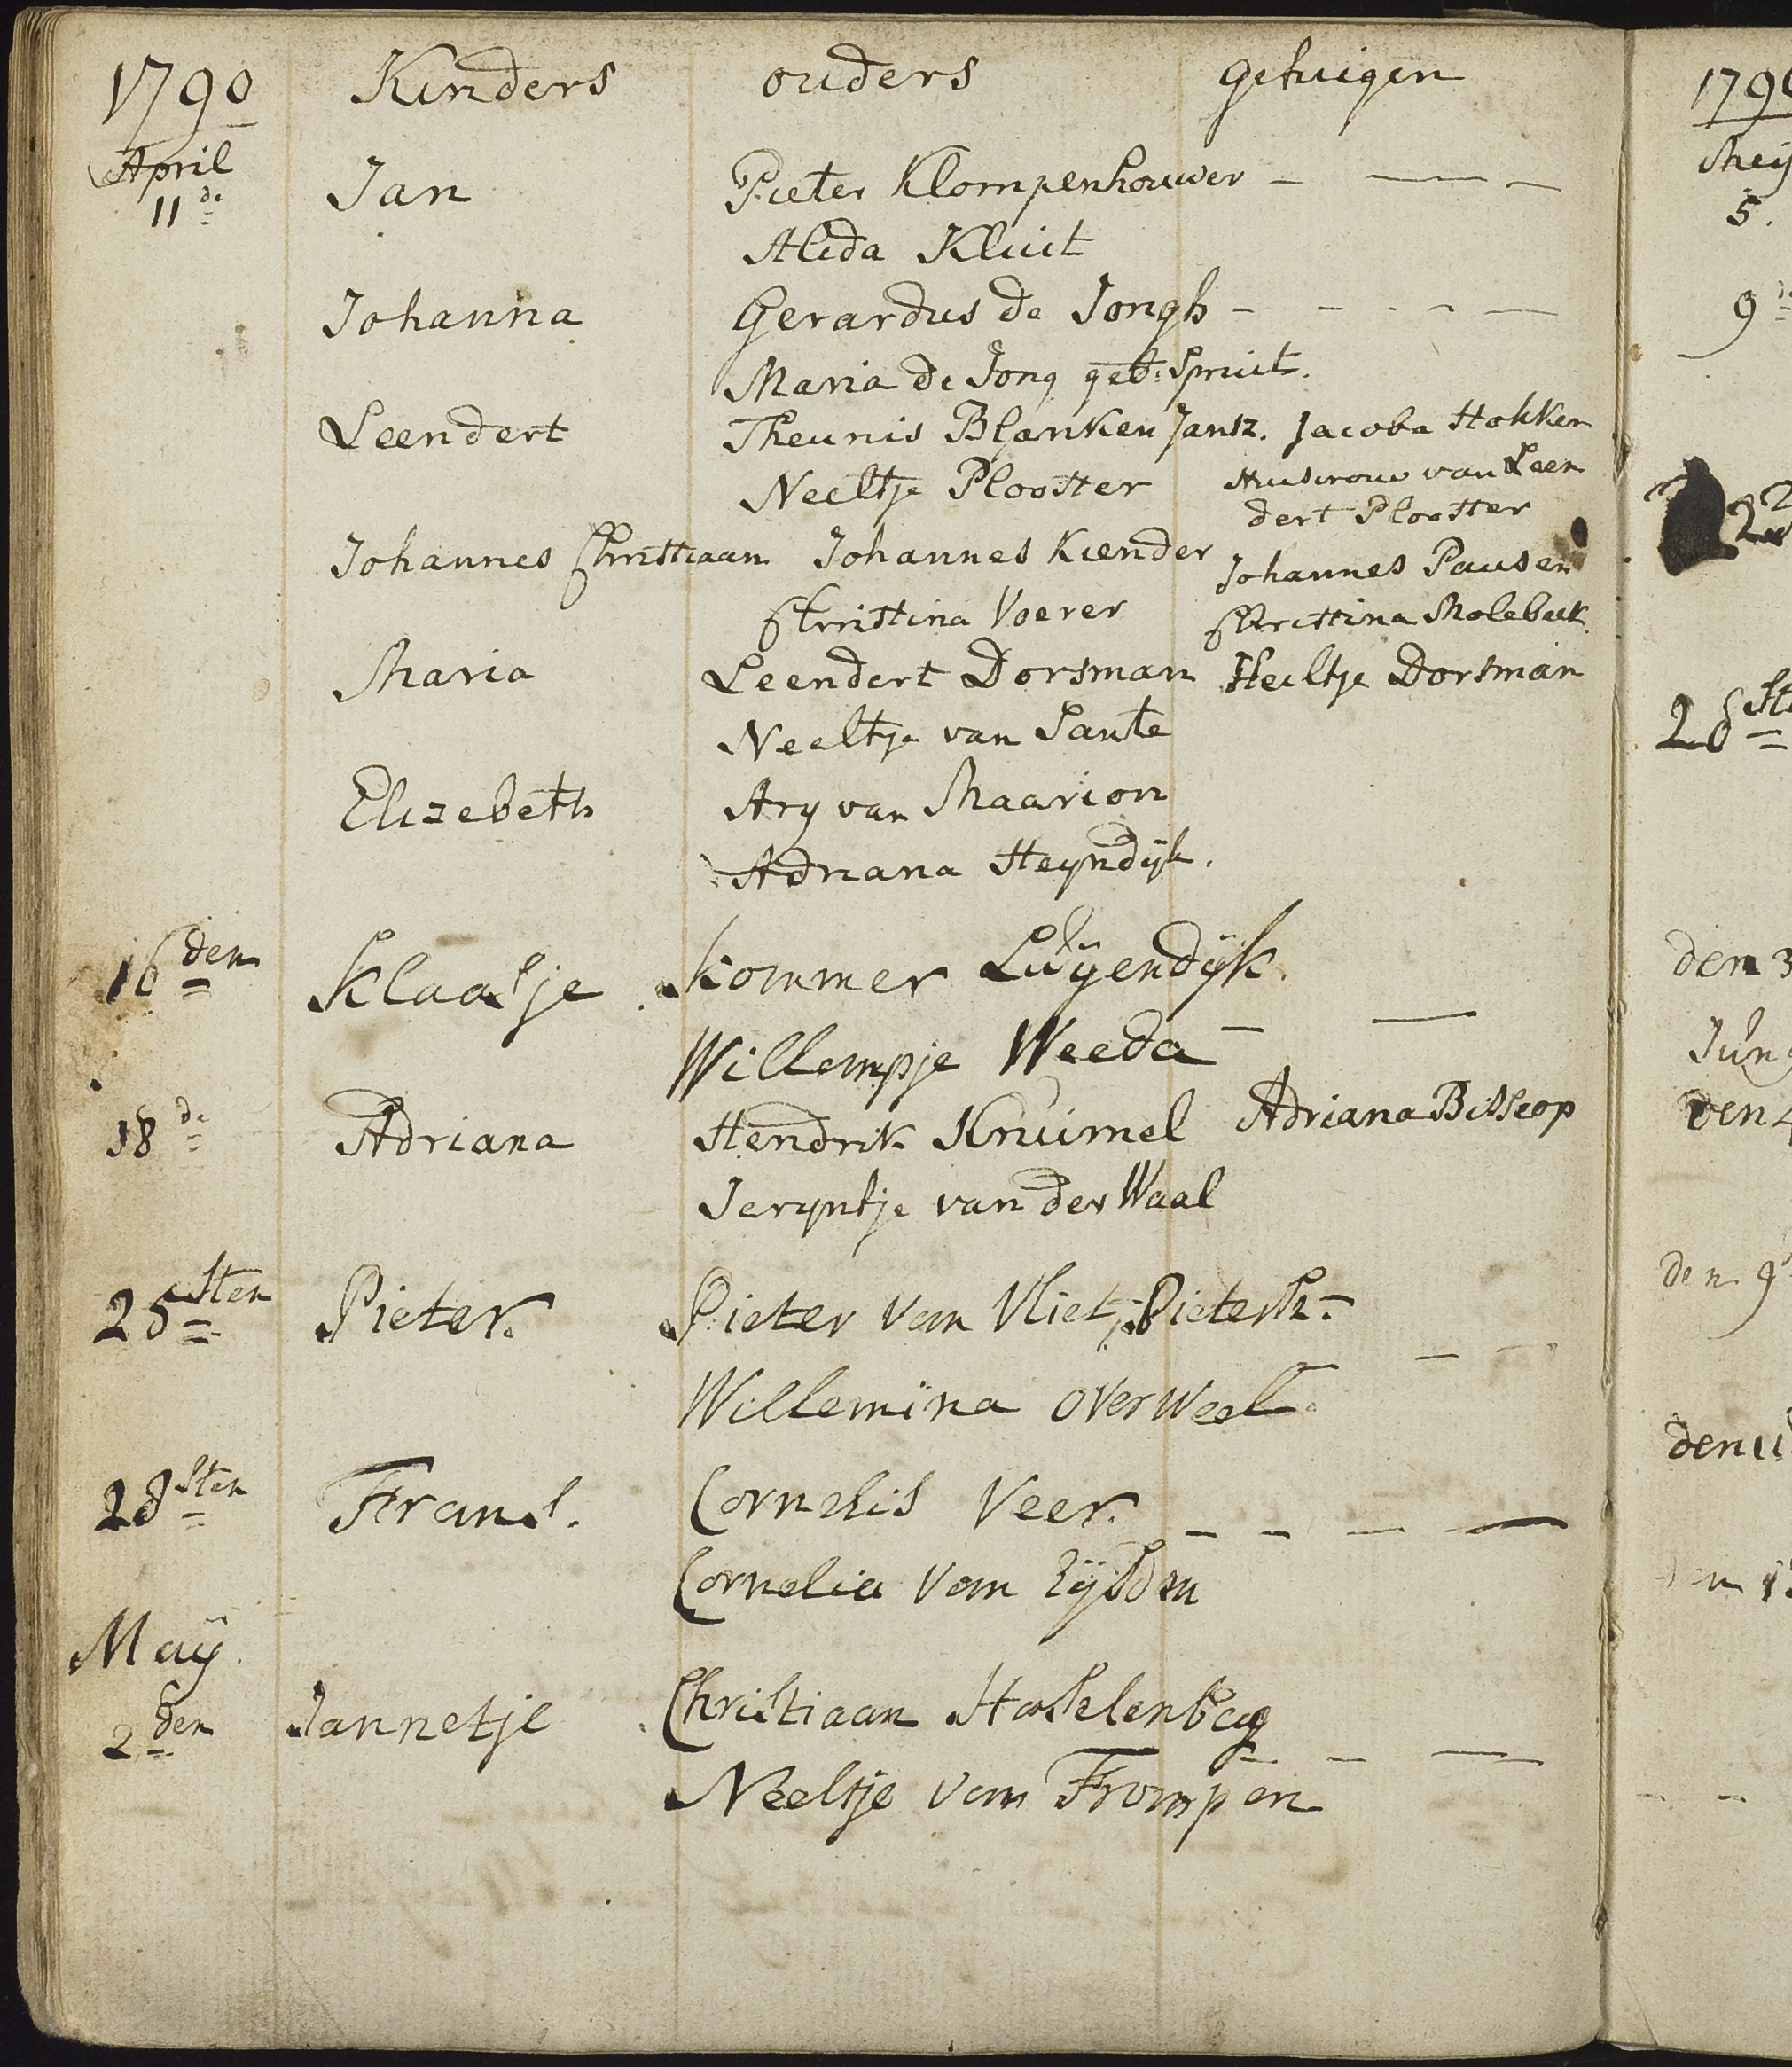 1790 Kinders ouders getuigen
April
11de Jan Pieter Klompenhouwer - - - -
Alida Kluit
Johanna Gerardus de Jongh - - - - -
Maria de Jong geb: Spruit.
Leendert Theunis Blanken Jansz. Jacoba Hokker
Neeltje Plooster Huisvrouw van Leen
dert Plooster
Johannes Christiaan Johannes Kiender Johannes Pausen
Christina Voerer Christina Molebeek
Maria Leendert Dorsman Heiltje Dorsman
Neeltje van Sante
Elizebeth Ary van Maarion
Adriana Heyndijk.
16den Klaasje Kommer Luijendijk.
Willempje Weeda - -
18de Adriana Hendrik Knuimel Adriana Bisscop
Jeryntje van der Waal
25sten Pieter. Pieter van Vliet, Pietersz. -
Willemina overweel. - -
28sten Frans. Cornelis Veer. - - - -
Cornelia van Eijsden
Maij.
2den Jannetje Christiaan Hasselenberg
- - -
Neeltje van Frompen
1790
Meij
5.
9de
22
26ste
den 3
Junij
den 4
den 9
den 11
den 13
- -